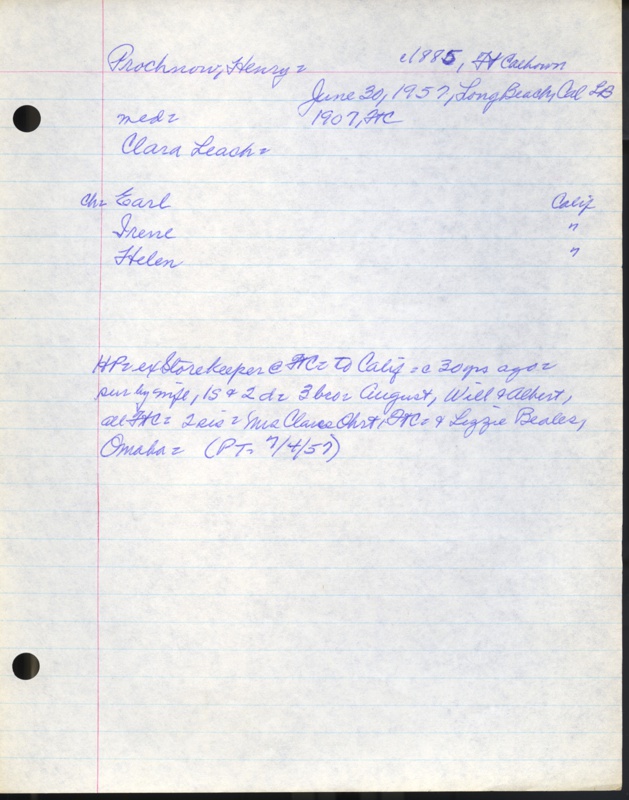 Prochnow, Henry = c1885, Ft Calhoun
June 30, 1957, Long Beach, Cal LB
med = 1907, FtC
Clara Leach =
ch = Earl Calif
Irene "
Helen "
HP = ex Storekeeper @ FtC = to Calif = c 30 yrs ago =
sur by wife, 1S & 2 d = 3 bro = August, Will & Albert,
all FtC = 2 sis = Mrs Clara Ohrt, FtC = & Lizzie Beales,
Omaha = (PT = 7/4/57)